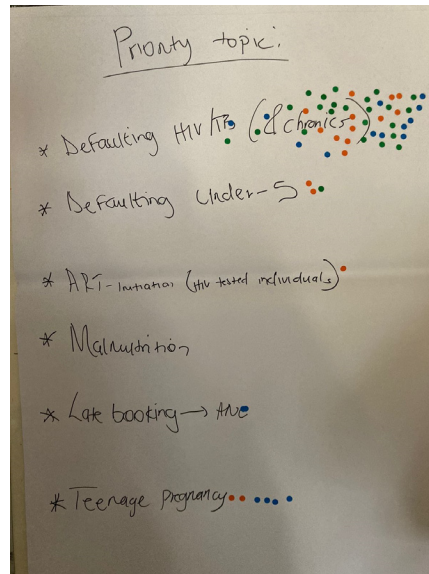 Priority topic:
* Defaulting HIV/TB (& chronics)
* Defaulting Under-5
* ART-Initiation (HIV tested individuals)
* Malnutrition
* Late booking → ANC
* Teenage Pregnancy